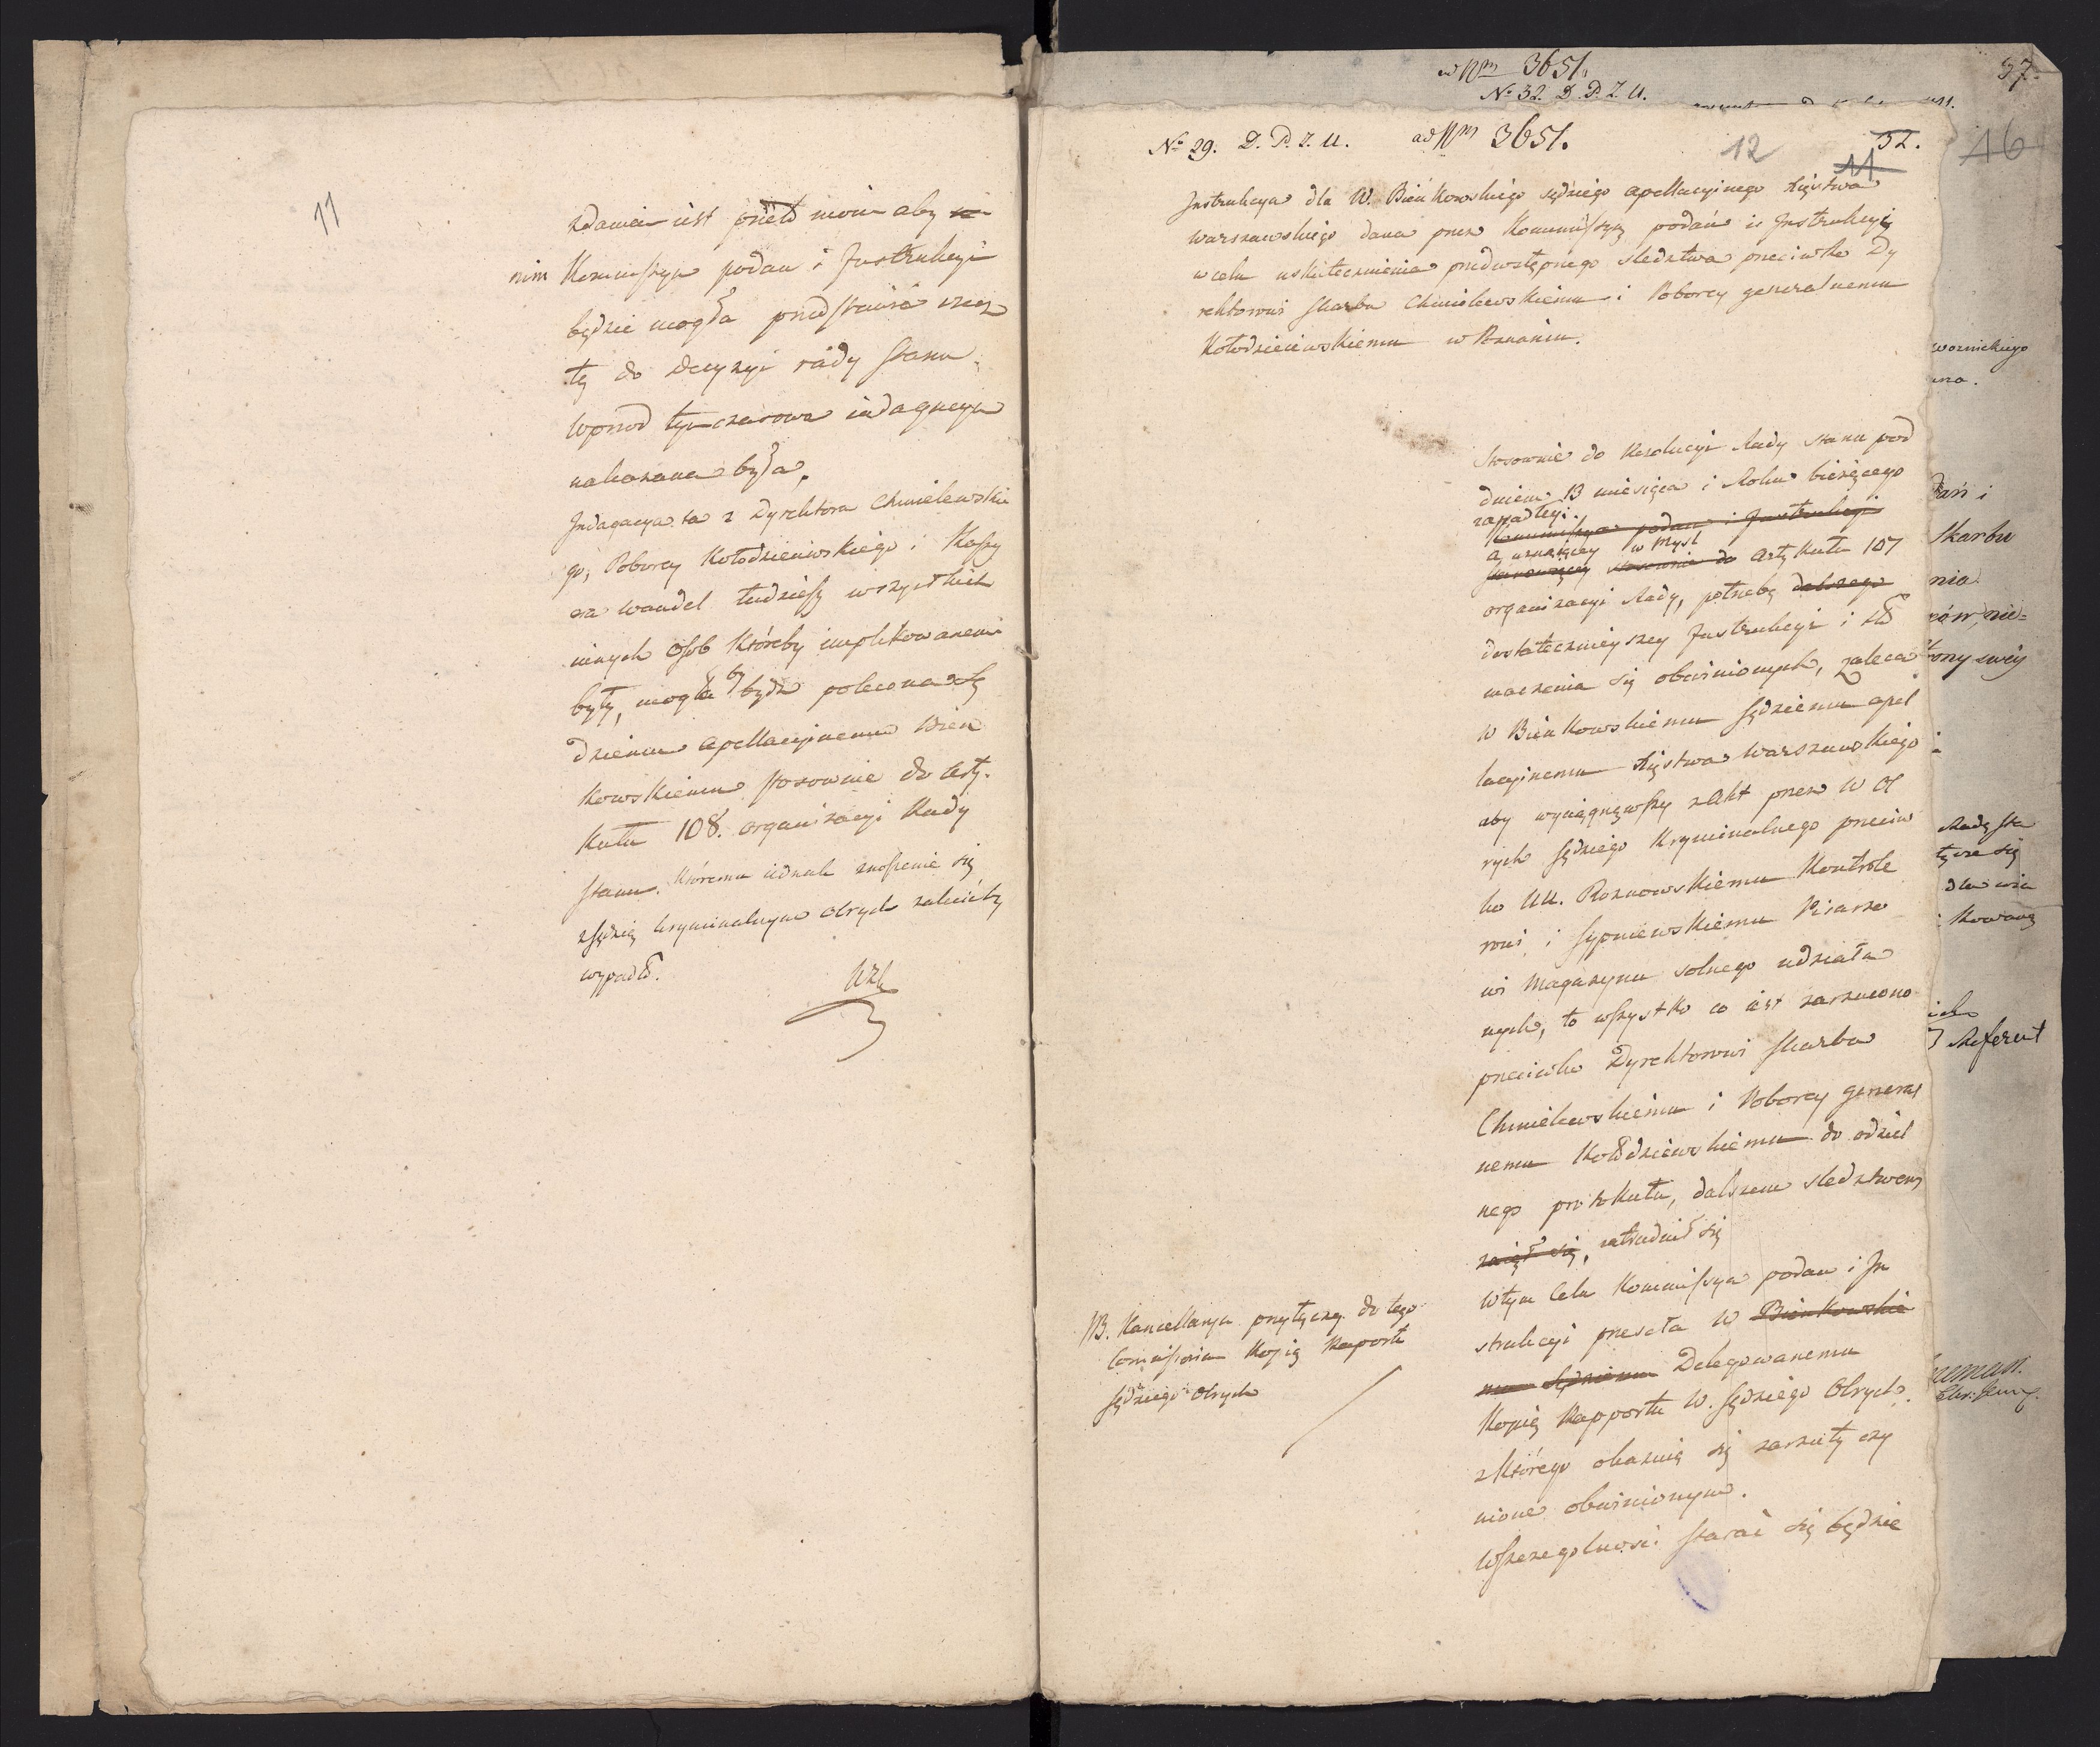 11
zdaniem iest przeto moim aby
nim Kommissya podan i Instrukcyi
będzie mogła przedstawić rzecz
tę do Decyzyi rady stanu
wprzod tymczasowa indagacya
nakazana była.
Indagacya ta z Dyrektora Chmielewskie
go, Poborcy Kołodzieiewskiego i Kassy
era Wandel tudziesz wszystkich
innych osob któreby implikowanemi
były, mogła by bydź polecona Sę
dziemu apellacyjnemu Bien
kowskiemu stosownie do arty-
kułu 108. organizacyi Rady
stanu. któremu iednak znoszenie się
z sędzią kryminalnym Olrych zalecićby
wypadło.
w Nm 3651.
No 32. D. P. Z. U.
37.
No 29. D. P. Z. U. ad Nm 3651.
12
32.
11
46
Instrukcya dla W. Bieńkowskiego sędziego apellacyinego Xięstwa
warszawskiego dana przez Kommissyą podań i Instrukcyi
w celu uskutecznienia przedwstępnego śledztwa przeciwko Dy
rektorowi skarbu Chmielewskiemu i Poborcy generalnemu
Kołodzieiewskiemu w Poznaniu.
Stosownie do Rezolucyi Rady stanu pod
dniem 13 miesiąca i Roku bieżącego
zapadłey.
Kommissya podan i Instrukcyi
a, uznaiącey w myśl
stosownie do Artykułu 107
organizacyi Rady, potrzebę dalszego
dostatecznieyszey Instrukcyi i tło
maczenia się obwinionych, zaleca
W Bienkowskiemu sędziemu apel
lacyinemu Xięstwa Warszawskiego
aby wyciągnąwszy z Akt przez W Ol
rych sędziego Kryminalnego przeciw
ko UU. Roznowskiemu Kontrole
rowi i Sypniewskiemu Pisarzo
wi Magazynu solnego udziała
nych, to wszystko co iest zarzucono
przeciwko Dyrektorowi skarbu
Chmielewskiemu i Poborcy general
nemu Kołodziewskiemu do odziel
nego protokułu, dalszem sledztwem
zaiął się, zatrudnił się
W tym Celu Kommissya podan i In
strukcyi przeseła W Bienkowskie
mu Sędziemu Delegowanemu
Kopią Rapportu W. Sędziego Olrych.
z którego okazuią się zarzuty czy
nione obwinionym.
W szczegolnosci starać się będzie
NB. Kancellarya przyłączy do tego
Comissorium Kopią Raportu
sędziego Olrych
wornickiego
dań i
Skarbu
nia
rów, nie=
trony swey
Radę sta
tycze się
dla wia
kowaną
Referent